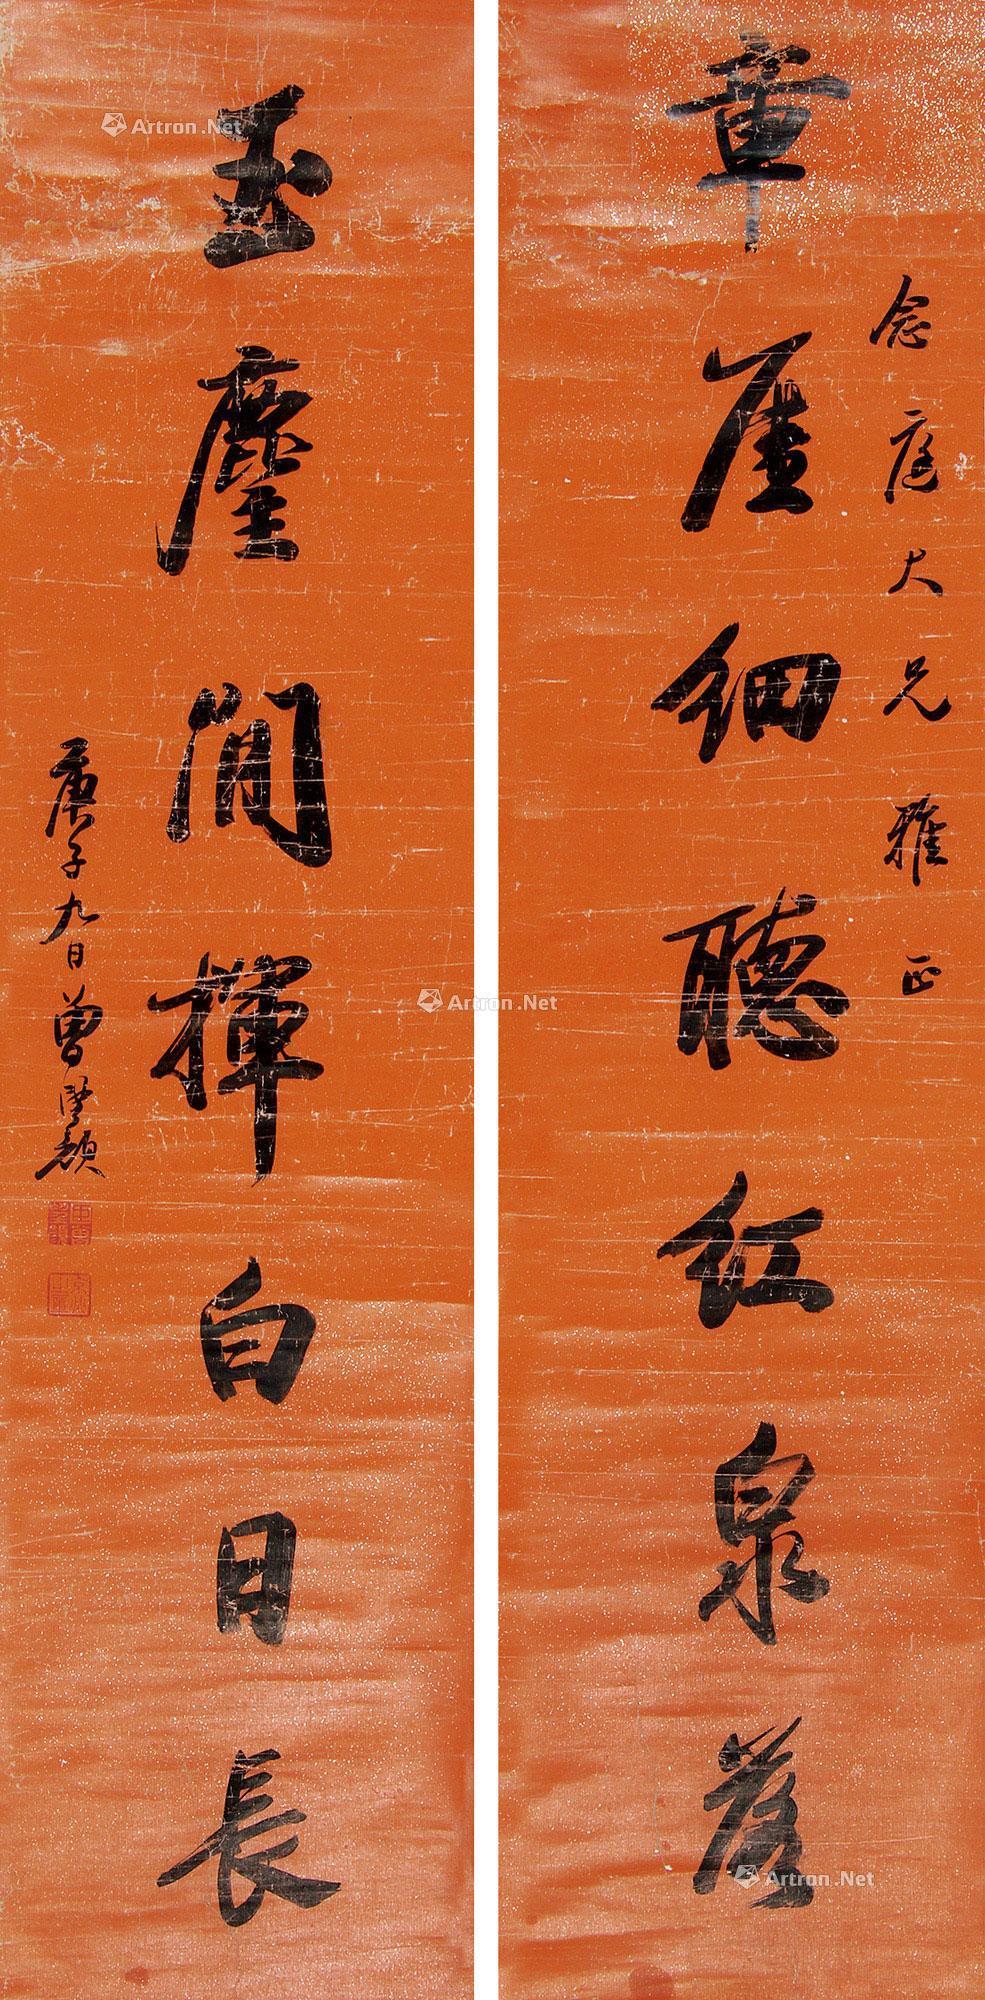 念庭大兄雅正
章厓細聽紅泉落
玉麈閒揮白日長
庚子九日曾望顏
Artron.Net
Artron.Net
Artron.Net
Artron.Net